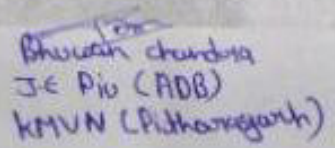 Bhuwan chandra
J.E Piu (ADB)
KMVN (Pithoragarh)